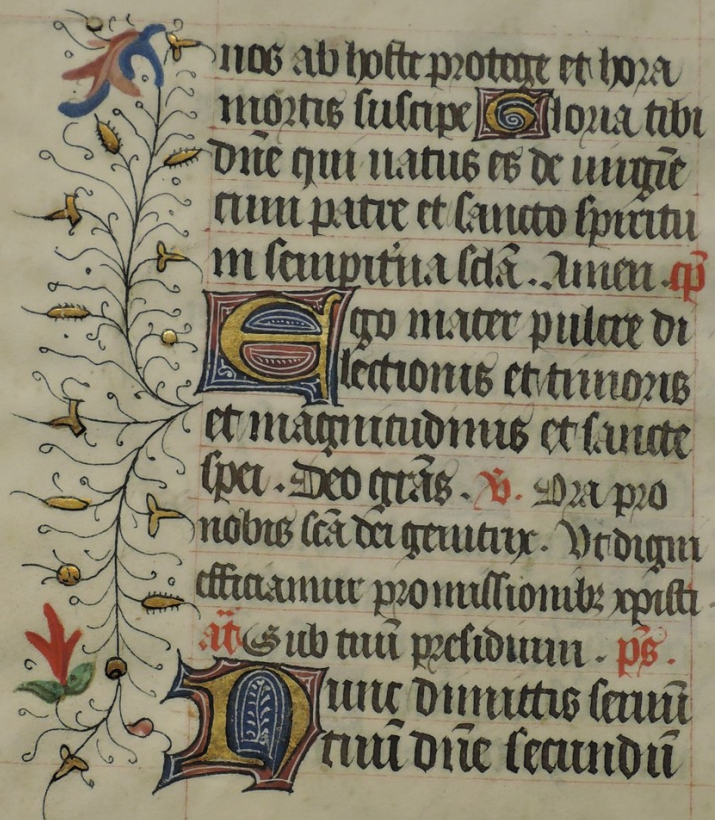 nos ab hoste protege et hora
mortis suscipe Gloria tibi
dñe qui natus es de uirgĩe
cum patre et sancto spiritu
in sempit'na sclã. Amen. cp̃
Ego mater pulcre di
lectionis et timoris
et magnitudinis et sancte
spei. Deo grãs. V. Ora pro
nobis scã dei genitrix. Vt digni
efficiamur promissionibꝫ xpisti.
añ Sub tuũ presidium. ps.
Nunc dimittis seruũ
tuũ dñe secundũ